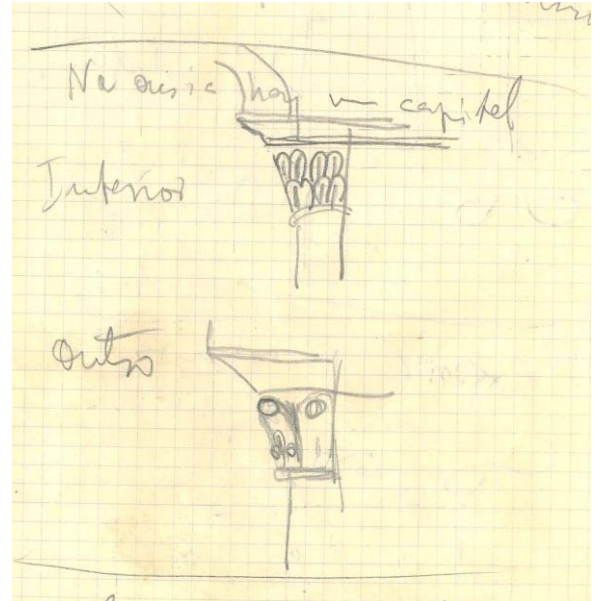 Na ousia hay un capitel
Interior
Outro